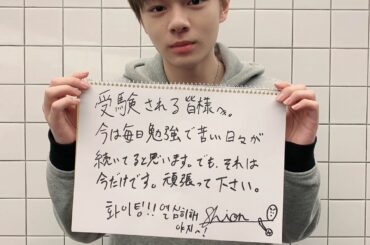 受験される皆様へ。
今は毎日勉強で苦しい日々が
続いてると思います。でも、それは
今だけです。頑張って下さい。
화이팅!! 열심히해
Shion